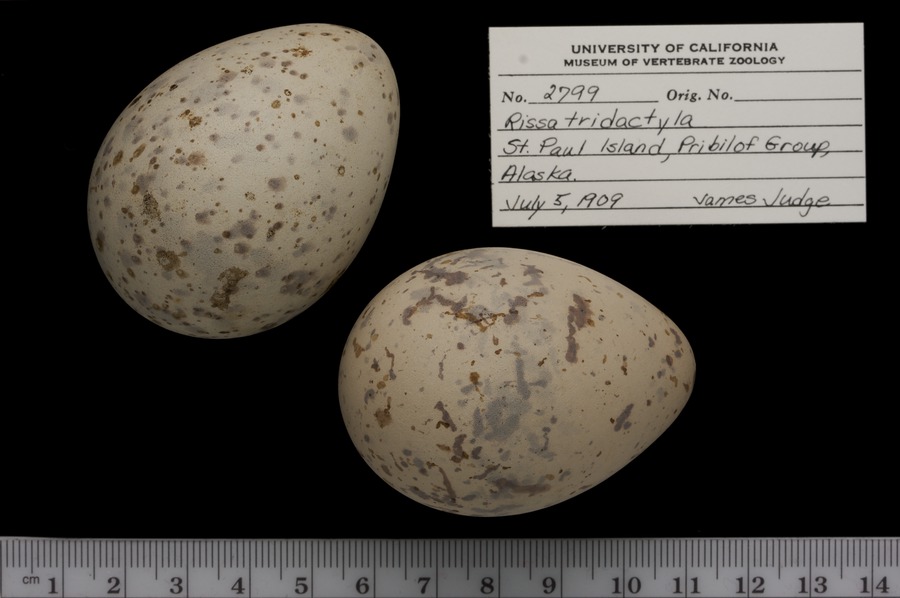 UNIVERSITY OF CALIFORNIA
MUSEUM OF VERTEBRATE ZOOLOGY
No. 2799 Orig. No.
Rissa tridactyla
St. Paul Island, Pribilof Group,
Alaska.
July 5, 1909 James Judge
cm 1 2 3 4 5 6 7 8 9 10 11 12 13 14